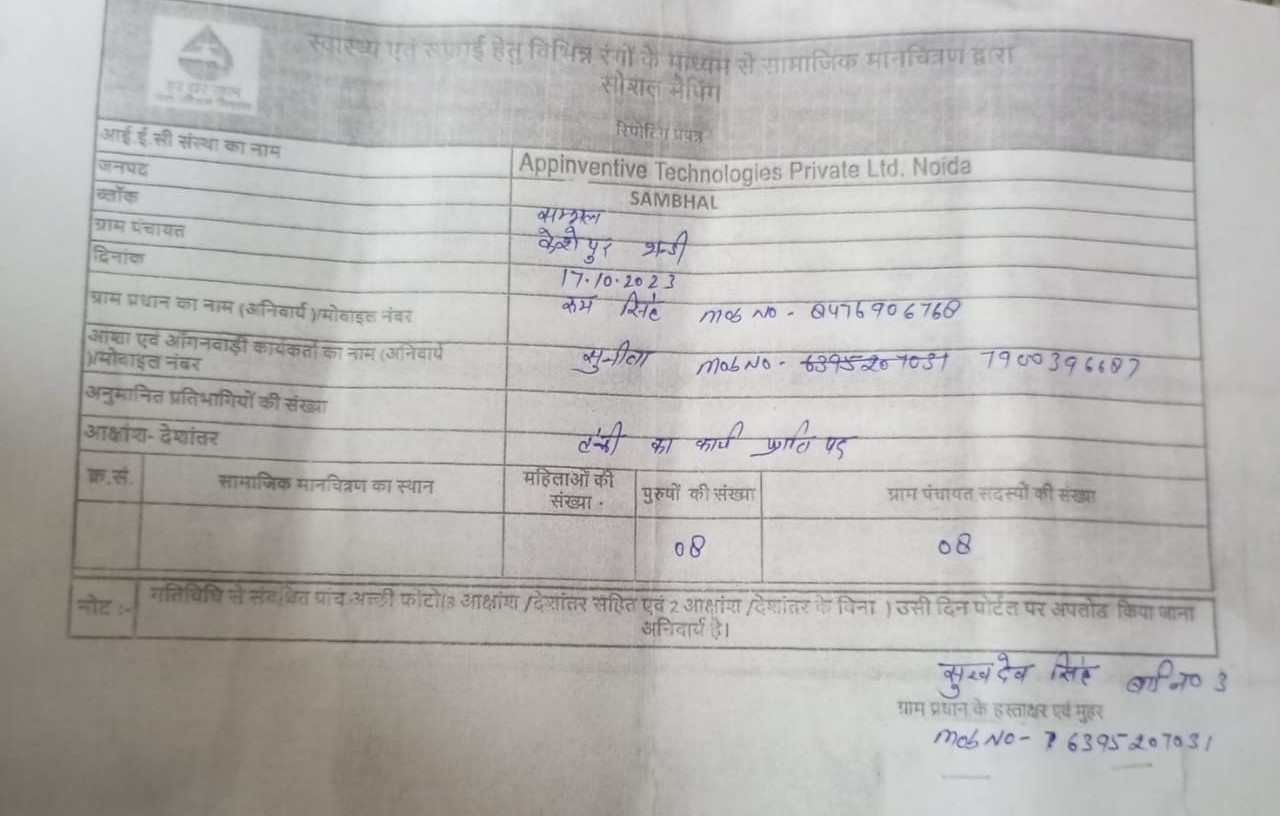 स्वास्थ्य एवं सफाई हेतु विभिन्न रंगों के माध्यम से सामाजिक मानचित्रण द्वारा
सोशल मैपिंग
रिपोर्टिंग प्रपत्र
आई.ई.सी संस्था का नाम Appinventive Technologies Private Ltd. Noida
जनपद SAMBHAL
ब्लॉक सम्भल
ग्राम पंचायत केशोपुर
दिनांक 17.10.2023
ग्राम प्रधान का नाम (अनिवार्य)/मोबाइल नंबर सिंह mob NO - 8476906768
आशा एवं आँगनवाड़ी कार्यकर्ता का नाम (अनिवार्य
)/मोबाइल नंबर सुनीता mob NO - 6395207031 7900396687
अनुमानित प्रतिभागियों की संख्या
आक्षांश- देशांतर टंकी का कार्य पर
क्र.सं. सामाजिक मानचित्रण का स्थान महिलाओं की संख्या पुरुषों की संख्या ग्राम पंचायत सदस्यों की संख्या
08 08
नोट :- गतिविधि से संबंधित पांच अच्छी फोटो(3 आक्षांश /देशांतर सहित एवं 2 आक्षांश /देशांतर के बिना ) उसी दिन पोर्टल पर अपलोड किया जाना
अनिवार्य है।
सुखदेव सिंह 3
ग्राम प्रधान के हस्ताक्षर एवं मुहर
mob NO - 6395207031